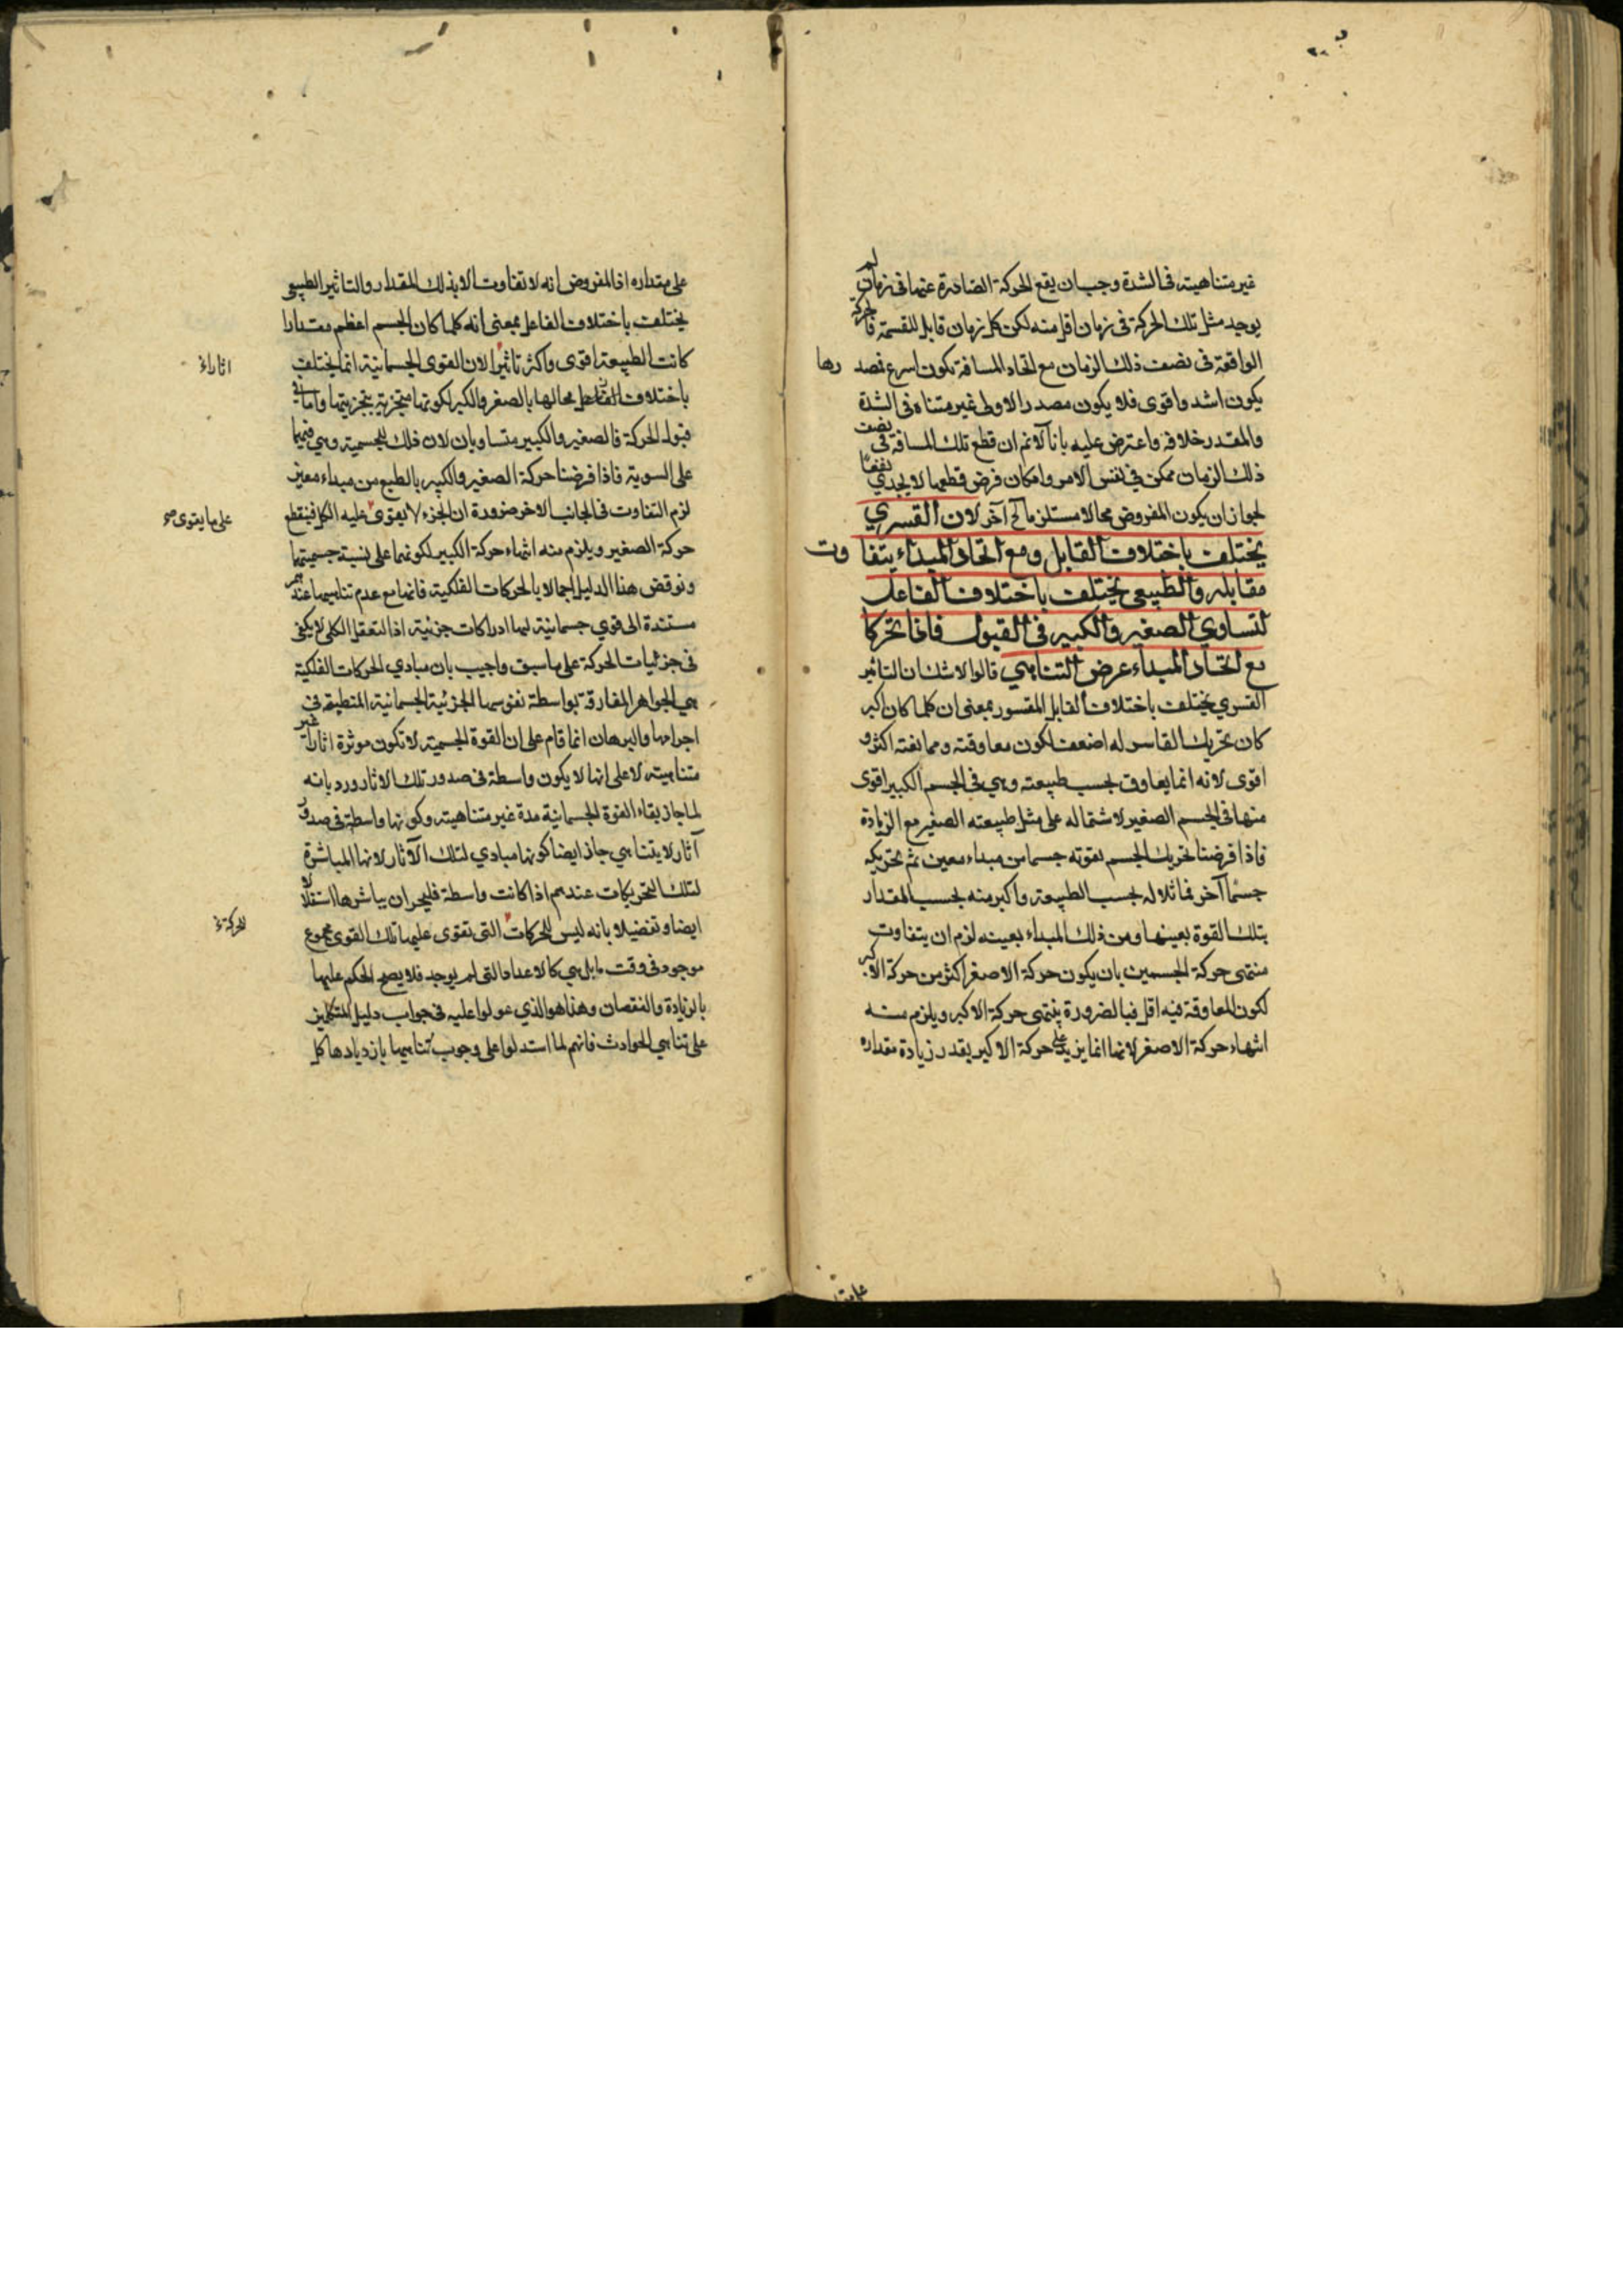 غير متناهية في الشدة وجب ان يقع الحركة الصادرة عنها في زمان لم
يوجد مثل تلك الحركة في زمان اقل منه لكن كل زمان قابل للقسمة فالحركة
الواقعة في نصف ذلك الزمان مع اتحاد المسافة تكون اسرع فمصدرها
يكون اشد واقوى فلا يكون مصدر الاولى غير متناه في الشدة
والمقدر خلافه واعترض عليه بانا لا نم ان قطع تلك المسافة في نصف
ذلك الزمان ممكن في نفس الامر وامكان فرض قطعها لا يجدي نفعا
لجواز ان يكون المفروض محالا مستلزما لمح آخر لان القسري
يختلف باختلاف القابل ومع اتحاد المبداء يتفاوت
مقابله والطبيعي يختلف باختلاف الفاعل
لتساوي الصغير والكبير في القبول فاذا تحركا
مع اتحاد المبداء عرض التناهي قالوا لا شك ان التاثير
القسري يختلف باختلاف القابل المقسور بمعنى ان كلما كان اكبر
كان تحريك القاسر له اضعف لكون معاوقته وممانعته اكثر و
اقوى لانه انما يعاوق بحسب طبيعته وهي في الجسم الكبير اقوى
منها في الجسم الصغير لاشتماله على مثل طبيعته الصغير مع الزيادة
فاذا فرضنا تحريك الجسم بقوته جسما من مبداء معين ثم تحريكه
جسما آخر مماثلا له بحسب الطبيعة واكبر منه بحسب المقدار
بتلك القوة بعينها ومن ذلك المبداء بعينه لزم ان يتفاوت
منتهى حركة الجسمين بان يكون حركة الاصغر اكثر من حركة الاكبر
لكون المعاوقة فيه اقل فبالضرورة ينتهى حركة الاكبر ويلزم منه
انتهاء حركة الاصغر لانها انما يزيد على حركة الاكبر بقدر زيادة مقداره
على مقداره اذ المفروض انه لا تفاوت الا بذلك المقدار والتاثير الطبيعي
يختلف باختلاف الفاعل بمعنى انه كلما كان الجسم اعظم مقدارا
كانت الطبيعة اقوى واكثر تاثيرا لان القوى الجسمانية انما يختلف
اثارا
باختلاف محالها بالصغر والكبر لكونها متجزية بتجزيتها واما في
قبول الحركة فالصغير والكبير متساويان لان ذلك للجسمية وهي فيهما
على السوية فاذا فرضنا حركة الصغير والكبير بالطبع من مبداء معين
لزم التفاوت في الجانب الاخر ضرورة ان الجزء لا يقوى عليه الكل فينقطع
على ما يقوى صح
حركة الصغير ويلزم منه انتهاء حركة الكبير لكونهما على نسبة جسميتهما
ونوقض هذا الدليل اجمالا بالحركات الفلكية فانها مع عدم تناهيها عندهم
مستندة الى قوي جسمانية لها ادراكات جزئية اذ التعقل الكلي لا يكفي
في جزئيات الحركة على ما سبق واجيب بان مبادي الحركات الفلكية
هي الجواهر المفارقة بواسطة نفوسها الجزئية الجسمانية المنطبقة في
اجرامها والبرهان انما قام على ان القوة الجسمية لا تكون موثرة اثارا غير
متناهية لا على انها لا يكون واسطة في صدور تلك الاثار ورد بانه
لما جاز بقاء القوة الجسمانية مدة غير متناهية وكونها واسطة في صدور
آثار لا يتناهي جاز ايضا كونها مبادي لتلك الآثار لانها المباشرة
لتلك التحريكات عندهم اذا كانت واسطة فليجز ان يباشرها استقلالا
ايضا وتفصيلا بانه ليس للحركات التي تقوى عليها تلك القوى مجموع
للحركة
موجود في وقت ما بل هي كالاعداد التي لم يوجد فلا يصح الحكم عليها
بالزيادة والنقصان وهذا هو الذي عولوا عليه في جواب دليل المتكلمين
على تناهي الحوادث فانهم لما استدلوا على وجوب تناهيها بازديادها كل